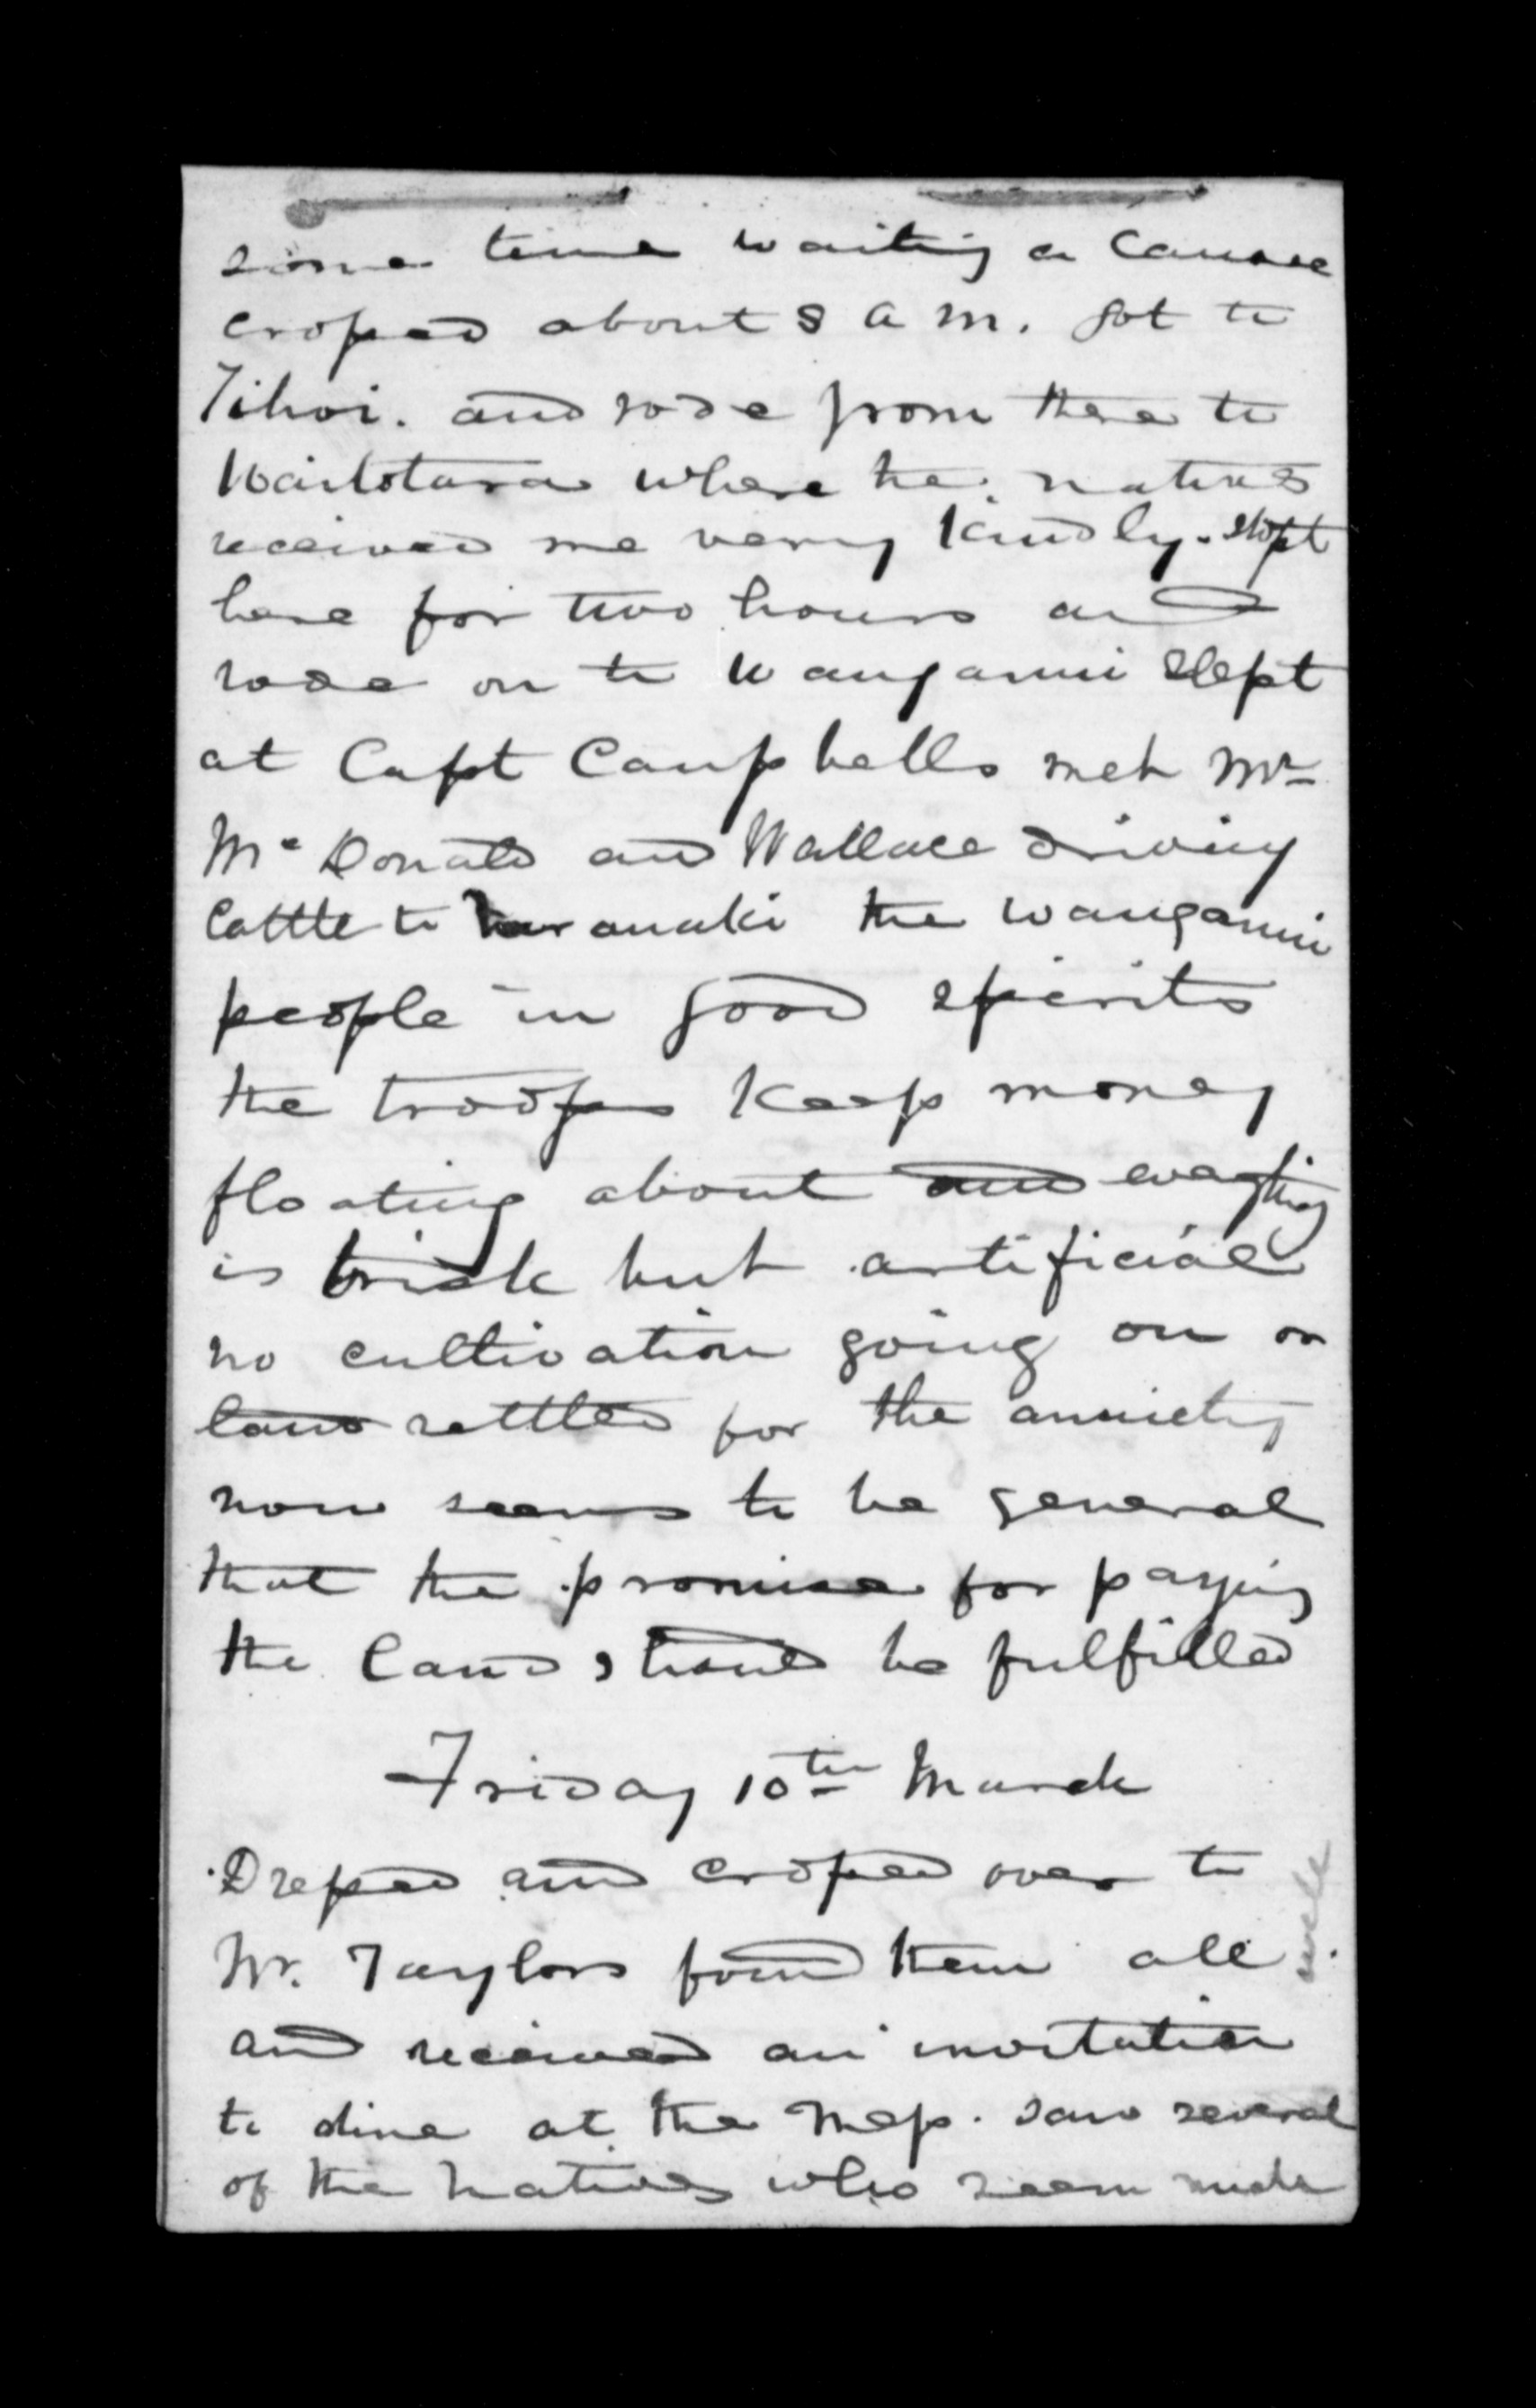 some time waiting a Canoae
crossed about 8 a m. got to
Tihoi. and rode from there to
Waitotara where the natives
received me very kindly. stopt
here for two hours and
rode on to Wanganui slept
at Capt Campbells met Mr
McDonald and Wallace driving
Cattle to Taranaki the Wanganui
people in good spirits
the troops keep money
floating about and everything
is brisk but artificial
no cultivation going on or
land settled for the anxiety
now seems to be general
that the promise for paying
the Land should be fulfilled
Friday 10th March
Dressed and crossed over to
Mr. Taylors found them all well
and received an invitation
to dine at the Mess. saw several
of the Natives who seem much